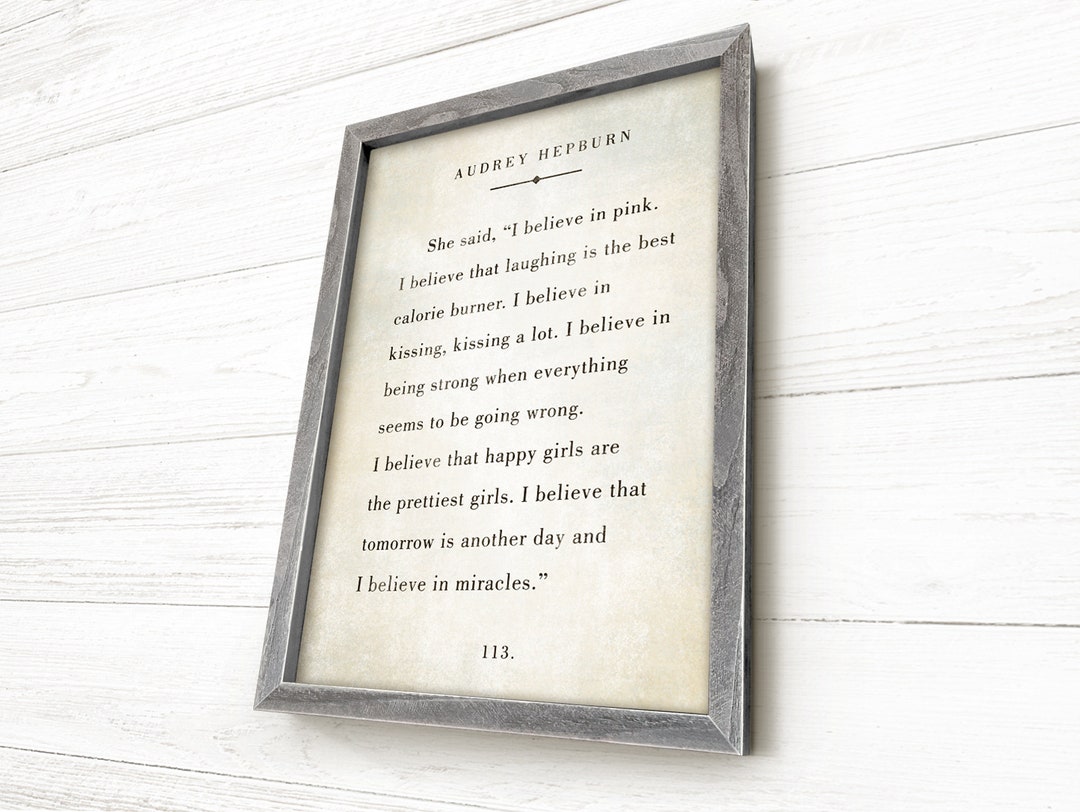 AUDREY HEPBURN
She said, “I believe in pink.
I believe that laughing is the best
calorie burner. I believe in
kissing, kissing a lot. I believe in
being strong when everything
seems to be going wrong.
I believe that happy girls are
the prettiest girls. I believe that
tomorrow is another day and
I believe in miracles.”
113.